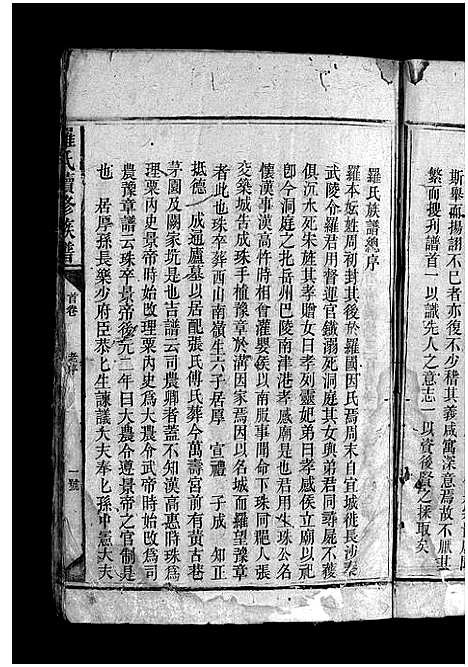 斯舉而揚詡不已者亦復不少稽其義咸寓深意焉故不厭其
繁而搜列譜首一以識先人之意志一以資後賢之採取矣
羅氏族譜總序
羅本妘姓周初封其後於羅國因氏焉周末自宜城徙長沙秦
武陵令羅君用督迎官鐵溺死洞庭其女與弟君同尋屍不獲
俱沉水死朱旌其孝贈女曰孝列靈妃弟曰孝感侯立廟以祀
卽今洞庭之北岳州巴陵南津港孝感廟是也君用生珠公名
懷漢事漢高祥時相會灌嬰侯以南服事開命下珠同郶人張
交築城告成珠手植豫章於溝因家焉因以名城而羅望豫章
者此也珠卒葬西山南嶺生六子居厚 宣禮 子成 知正
抵德 成通廬墓以居配張氏傅氏葬今萬壽宮前有黃古巷
茅園及關家坑是也吉譜云司農卿者蓋不知漢高惠時珠爲
治理粟內史景帝時始改理粟內史爲大農令武帝時始改爲司
農豫章譜云珠卒景帝後元二年曰大農令遵景帝之官制是
也 居厚孫長樂少府臣恭七生諫議大夫奉七孫中憲大夫
羅氏續修族譜
首卷
老序
一號